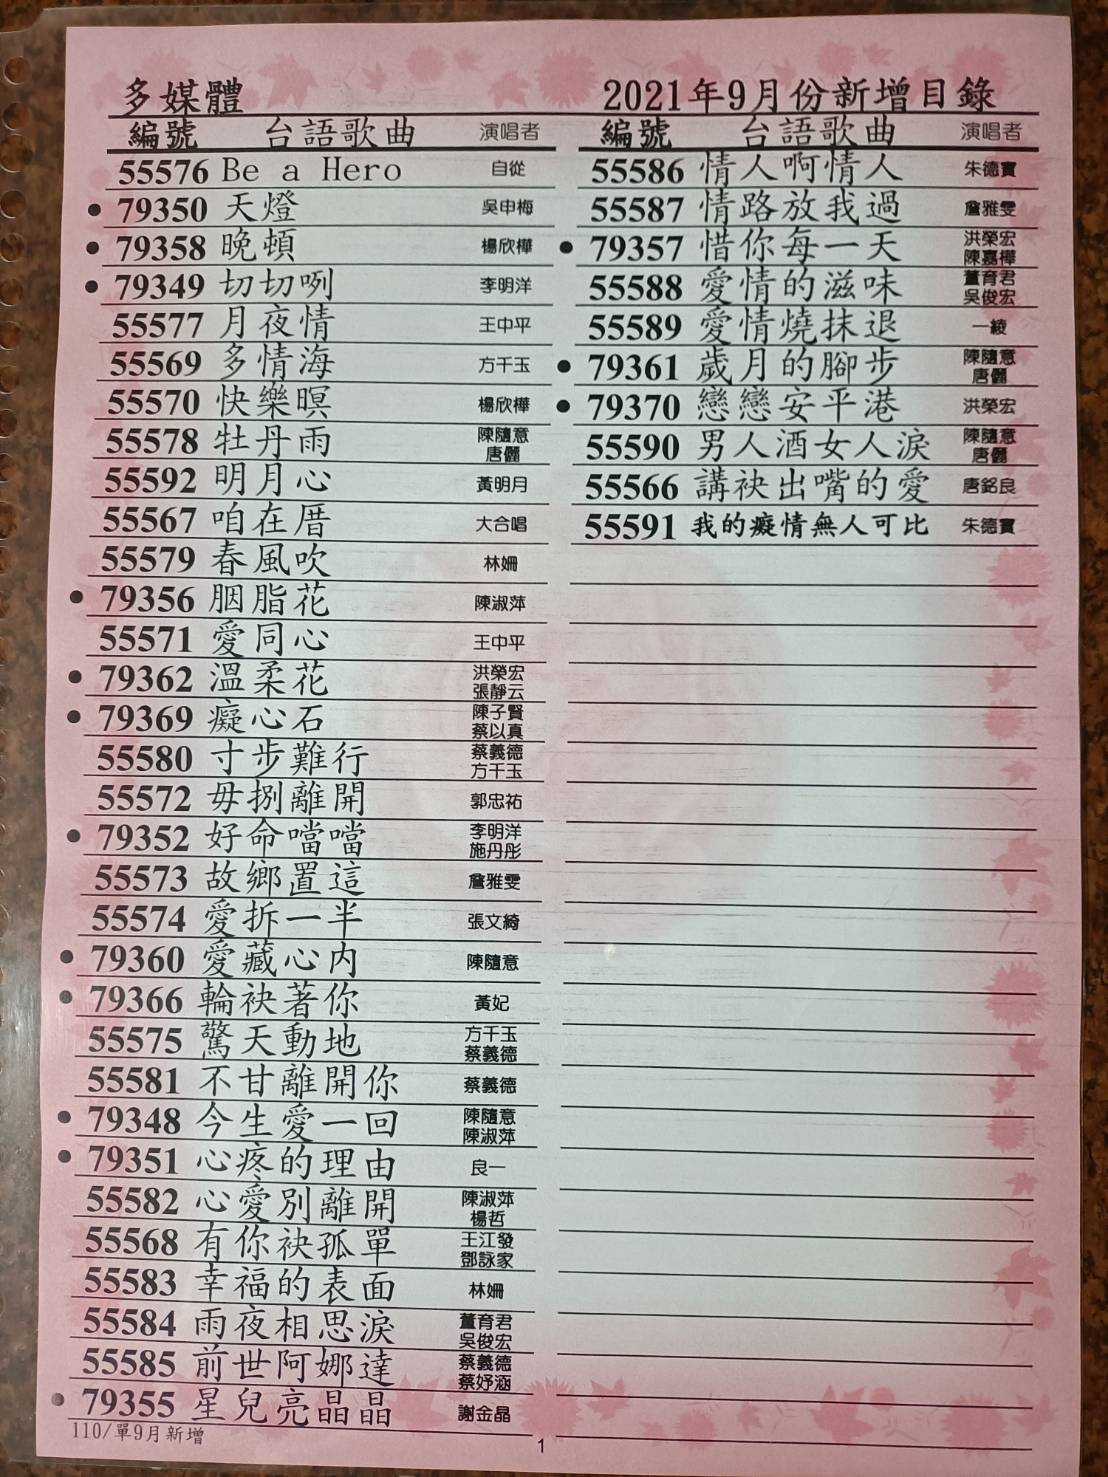 多媒體
2021年9月份新增目錄
編號 台語歌曲 演唱者
55576 Be a Hero 自從
● 79350 天燈 吳申梅
● 79358 晚頓 楊欣樺
● 79349 切切咧 李明洋
55577 月夜情 王中平
55569 多情海 方千玉
55570 快樂暝 楊欣樺
55578 牡丹雨 陳隨意 唐儷
55592 明月心 黃明月
55567 咱在厝 大合唱
55579 春風吹 林姍
● 79356 胭脂花 陳淑萍
55571 愛同心 王中平
● 79362 溫柔花 洪榮宏 張靜云
● 79369 癡心石 陳子賢 蔡以真
55580 寸步難行 蔡義德 方千玉
55572 毋捌離開 郭忠祐
● 79352 好命噹噹 李明洋 施丹彤
55573 故鄉置這 詹雅雯
55574 愛拆一半 張文綺
● 79360 愛藏心内 陳隨意
● 79366 輪袂著你 黃妃
55575 驚天動地 方千玉 蔡義德
55581 不甘離開你 蔡義德
● 79348 今生愛一回 陳隨意 陳淑萍
● 79351 心疼的理由 良一
55582 心愛別離開 陳淑萍 楊哲
55568 有你袂孤單 王江發 鄧詠家
55583 幸福的表面 林姍
55584 雨夜相思淚 董育君 吳俊宏
55585 前世阿娜達 蔡義德 蔡妤涵
● 79355 星兒亮晶晶 謝金晶
編號 台語歌曲 演唱者
55586 情人啊情人 朱德寶
55587 情路放我過 詹雅雯
● 79357 惜你每一天 洪榮宏 陳嘉樺
55588 愛情的滋味 董育君 吳俊宏
55589 愛情燒抹退 一綾
● 79361 歲月的腳步 陳隨意 唐儷
● 79370 戀戀安平港 洪榮宏
55590 男人酒女人淚 陳隨意 唐儷
55566 講袂出嘴的愛 唐銘良
55591 我的癡情無人可比 朱德寶
110/單9月新增
1